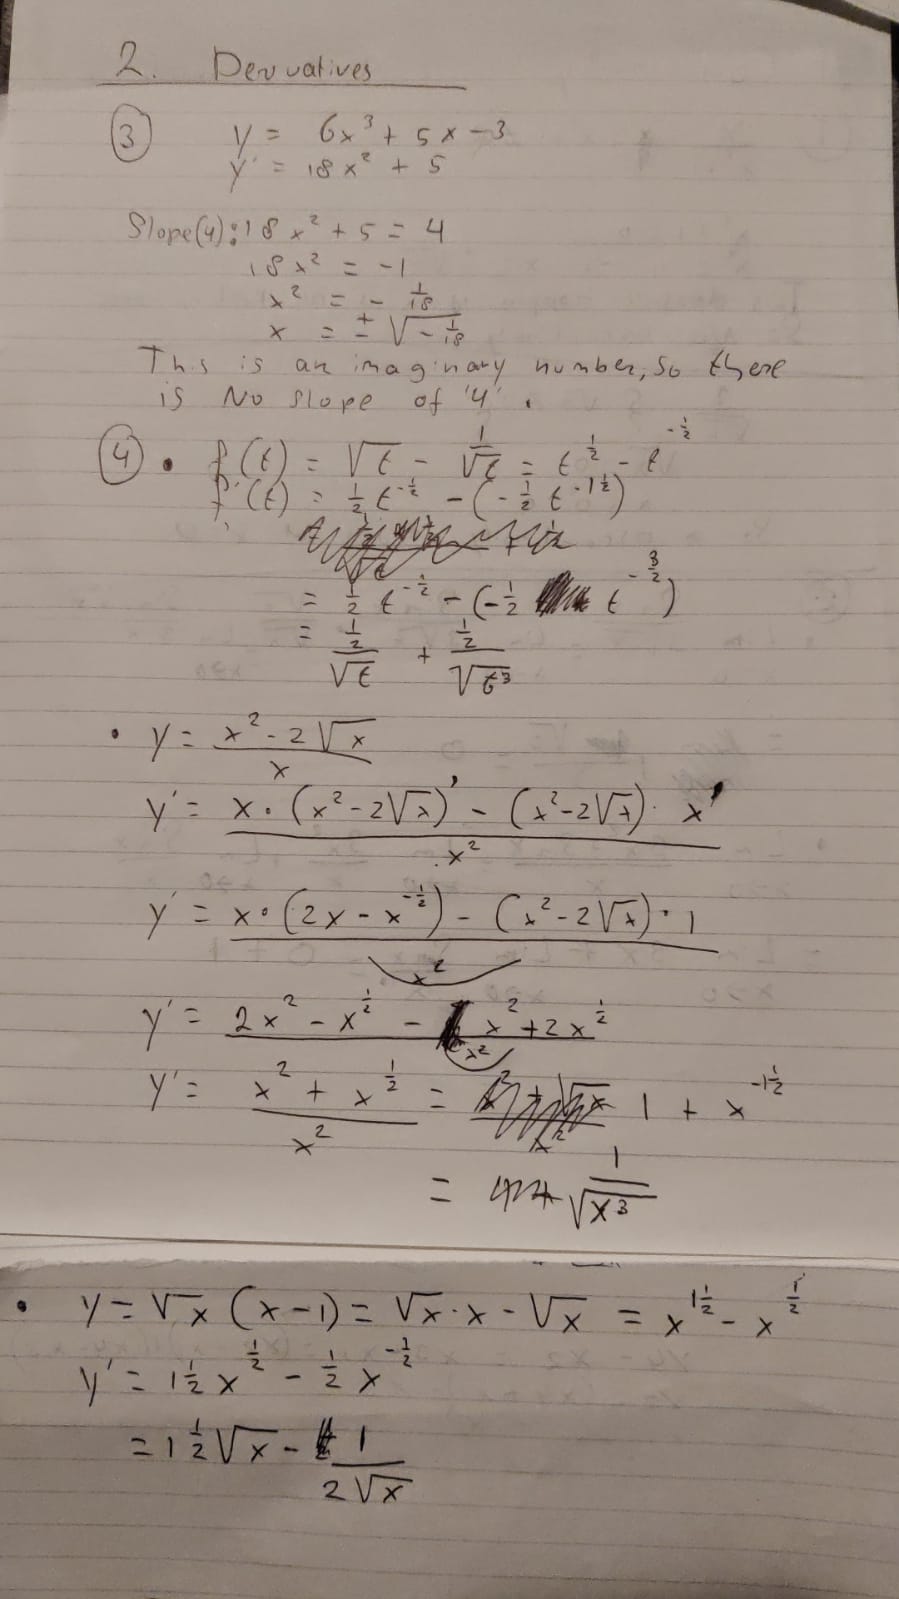 2. Derivatives
③ y = 6x³ + 5x - 3
y' = 18x² + 5
Slope(4): 18x² + 5 = 4
18x² = -1
x² = - 1/18
x = ± √(-1/18)
This is an imaginary number, so there
is No slope of '4'.
④ • f(t) = √t - 1/√t = t^(1/2) - t^(-1/2)
f'(t) = 1/2 t^(-1/2) - (-1/2 t^(-1 1/2))
= 1/2 t^(-1/2) - (-1/2 t^(-3/2))
= (1/2)/√t + (1/2)/√t³
• y = (x² - 2√x)/x
y' = (x · (x² - 2√x)' - (x² - 2√x) · x')/x²
y' = (x · (2x - x^(-1/2)) - (x² - 2√x) · 1)/x²
y' = (2x² - x^(1/2) - x² + 2x^(1/2))/x²
y' = (x² + x^(1/2))/x² = 1 + x^(-1 1/2)
= 1/√x³
• y = √x (x - 1) = √x · x - √x = x^(1 1/2) - x^(1/2)
y' = 1 1/2 x^(1/2) - 1/2 x^(-1/2)
= 1 1/2 √x - 1/(2√x)